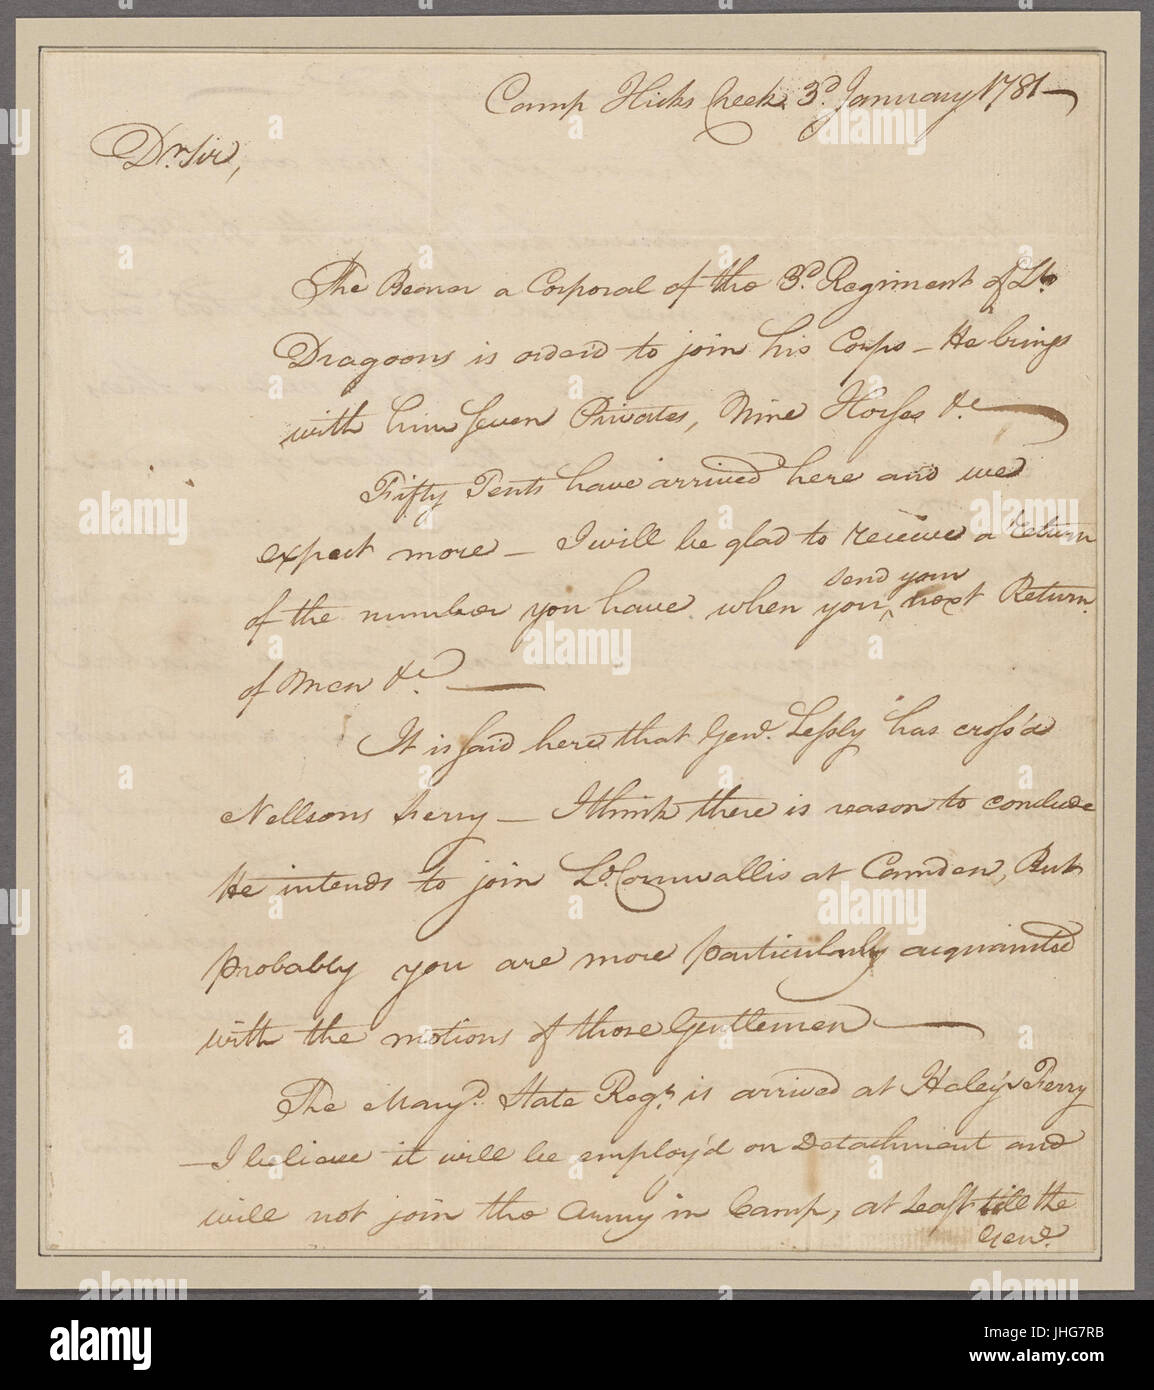 Camp Hicks Creek 3d. January 1781 —
Dr. Sir,
The Bearer a Corporal of the 3d. Regiment of Lt.
Dragoons is order'd to join his Corps – He brings
with him seven Privates, Nine Horses &c —
Fifty Tents have arrived here and we
expect more – I will be glad to receive a return
of the number you have, when you ^ send your next Return
of Men &c. —
It is said here that Genl. Lessly has cross'd
Nellsons Ferry – I think there is reason to conclude
He intends to join Ld. Cornwallis at Camden, But
probably you are more particularly acquainted
with the motions of those Gentlemen —
The Maryd. State Regt. is arrived at Haley's Ferry
– I believe it will be employ'd on Detachment and
will not join the Army in Camp, at least till the
Genl.
alamy
Image ID: JHG7RB
www.alamy.com